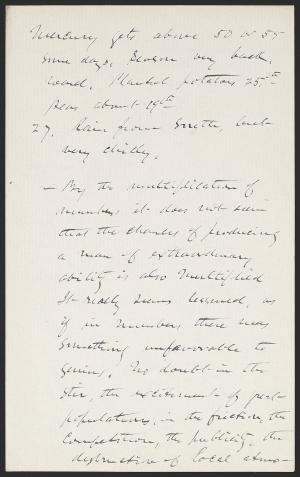 Mercury gets above 50 or 55
some days. Season very back-
ward. Planted potatoes 25th
peas about 19th
27. Rain from South, but
very chilly.
— By the multiplication of
numbers it does not seem
that the chances of producing
a man of extraordinary
ability is also multiplied
It really seems lessened, as
if in numbers there was
something unfavorable to
genius. No doubt in the
stir, the excitement of great
populations, in the friction, the
competition, the publicity, the
destruction of local atmo-